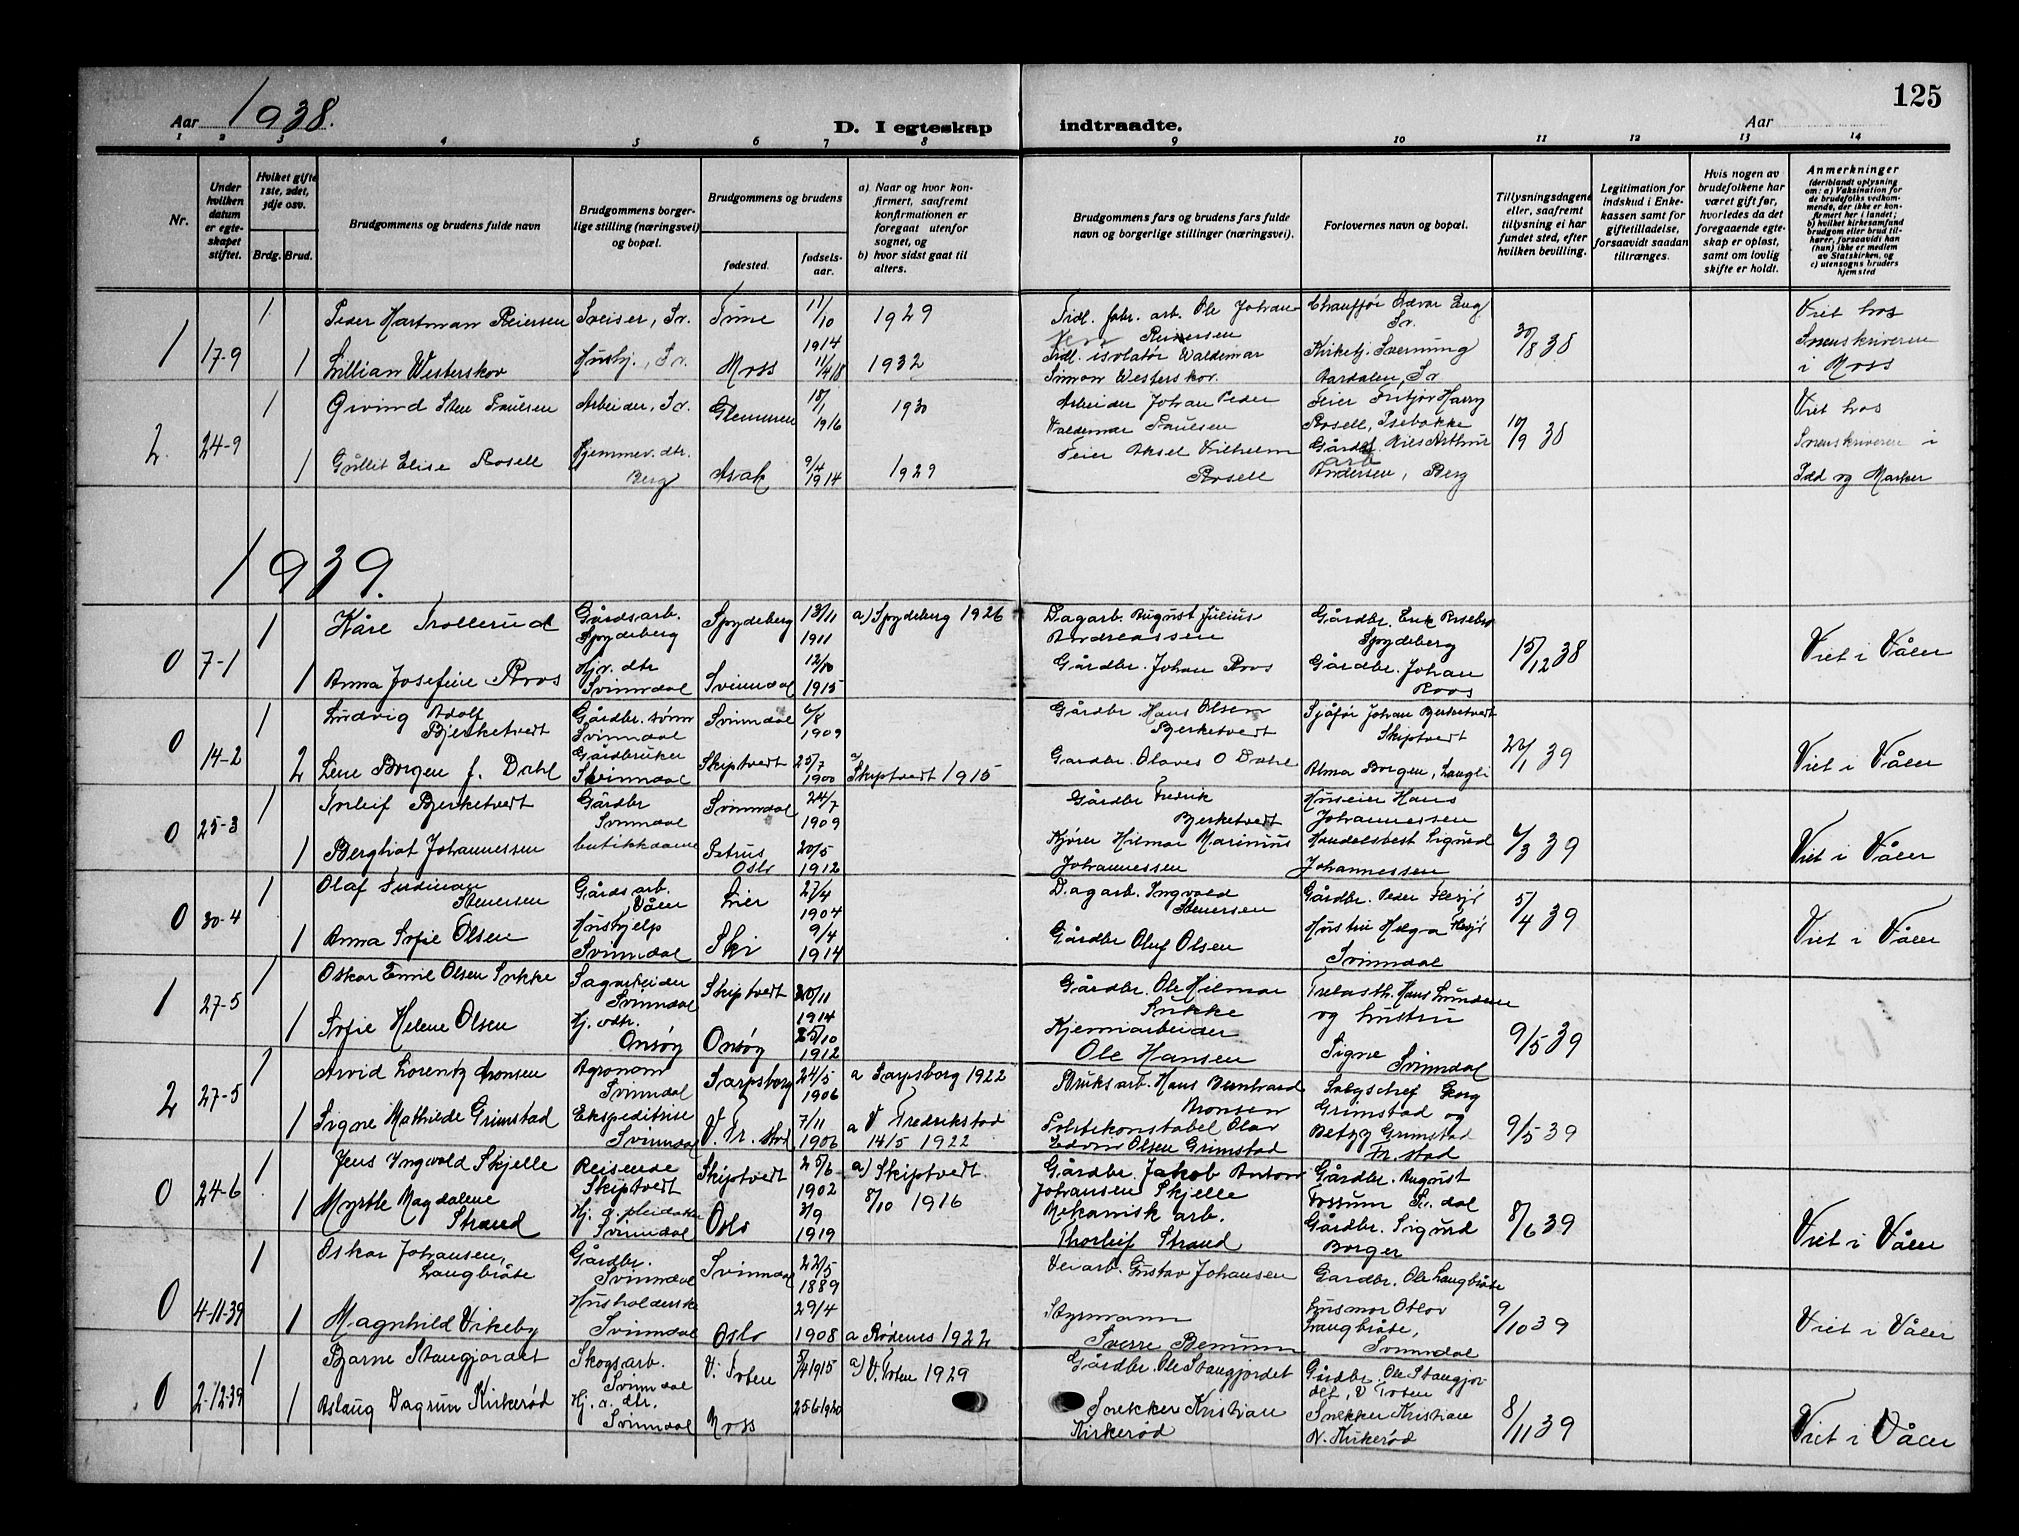 125
Aar 1938.
D. I egteskap indtraadte.
Aar
1 2 3 4 5 6 7 8 9 10 11 12 13 14
Nr.
Under hvilken datum er egteskapet stiftet.
Hvilket gifte 1ste, 2det, 3dje osv.
Brdg. Brud.
Brudgommens og brudens fulde navn
Brudgommens borgerlige stilling (næringsvei) og bopæl.
Brudgommens og brudens
fødested.
fødselsaar.
a) Naar og hvor konfirmert, saafremt konfirmationen er foregaat utenfor sognet, og
b) hvor sidst gaat til alters.
Brudgommens fars og brudens fars fulde navn og borgerlige stillinger (næringsvei).
Forlovernes navn og bopæl.
Tillysningsdagene eller, saafremt tillysning ei har fundet sted, efter hvilken bevilling.
Legitimation for indskud i Enkekassen samt for giftetilladelse, forsaavidt saadan tiltrænges.
Hvis nogen av brudefolkene har været gift før, hvorledes da det foregaaende egteskap er opløst, samt om lovlig skifte er holdt.
Anmerkninger
(deriblandt oplysning om: a) Vaksination for de brudefolks vedkommende, der ikke er konfirmert her i landet; b) hvilket kirkesamfund brudgom eller brud tilhører, forsaavidt han (hun) ikke er medlem av Statskirken, og c) utensogns bruders hjemsted
1 17-9 1 Peder Hartman Reiersen Sveiser, Sv. Tune 11/10 1914 1929 Tidl. fabr. arb. Ole Johan Reiersen Chauffør Ævar Eng Sv. 30/8 38 Viet hos Sorenskriveren i Moss
1 Lillian Westerskov Hushj., Sv. Moss 11/4 18 1932 Tidl. isolatør Waldemar Simon Westerskov. Kirketj. Sverning Aardalen, Sv
2 24-9 1 Øivind Sten Paulsen Arbeider, Sv. Glemmen 18/1 1916 1930 Arbeider Johan Peder Waldemar Paulsen Feier Fritjof Harry Rosell, Isebakke 10/9 38 Viet hos Sorenskriveren i Idd og Marker
1 Gullit Elise Rosell Hjemmev. dtr. Berg Asak 9/4 1914 1929 Feier Aksel Vilhelm Rosell Gårdsarb Nils Arthur Andersen, Berg
1939.
0 7-1 1 Kåre Trollerud Gårdsarb. Spydeberg Spydeberg 13/11 1911 a) Spydeberg 1926 Dagarb. August Julius Andreassen Gårdbr. Erik Spydeberg 15/12 38 Viet i Våler
1 Anna Josefine Roos Hjv. dtr Svinndal Svinndal 12/10 1915 Gårdbr. Johan Roos Gårdbr. Johan Roos
0 14-2 1 Ludvig Adolf Bjerketvedt Gårdbr. sønn Svinndal Svinndal 6/8 1909 Gårdbr Hans Olsen Bjerketvedt Sjåfør Johan Bjerketvedt Skiptvedt 22/1 39 Viet i Våler
2 Lene Borgen f. Dahl Gårdbruker Svinndal Skiptvedt 25/7 1900 a) Skiptvedt 1915 Gardbr. Olaves O Dahl Alma Borgen, Langli
0 25-3 1 Torleif Bjerketvedt Gårdbr Svinndal Svinndal 24/7 1909 Gårdbr Fredrik Bjerketvedt Huseier Hans Johannessen 6/3 39 Viet i Våler
1 Bergliot Johannessen butikkdame Petrus Oslo 20/5 1912 Kjører Hilmar Marinius Johannessen Handelsbest Sigurd Johannessen
0 30-4 1 Olaf Ferdinan Stenersen Gårdsarb. Våler Lier 27/4 1904 Dagarb. Ingvald Stenersen Gårdbr. Peder Flesjø 5/4 39 Viet i Våler
1 Anna Sofie Olsen Hushjelp Svinndal Ski 9/4 1914 Gårdbr Oluf Olsen Hustru Helga Flesjø Svinndal
1 27-5 1 Oskar Emil Olsen Sukke Sagarbeider Svinndal Skiptvedt 20/11 1914 Gårdbr. Ole Hilmar Sukke Trelasth. Hans Lundeen og hustru Signe Svinndal 9/5 39
1 Sofie Helene Olsen Hj. vdtr. Onsøy Onsøy 25/10 1912 Kjemiarbeider Ole Hansen
2 27-5 1 Arvid Lorentz Aronsen Agronom Svinndal Sarpsborg 24/5 1906 a Sarpsborg 1922 Bruksarb. Hans Bernhard Aronsen Salgschef Georg Grimstad og Betzy Grimstad Fr.stad 9/5 39
1 Signe Mathilde Grimstad Ekspeditrise Svinndal V. Fr. stad 7/11 1906 a V Fredrikstad 14/5 1922 Politikonstabel Olav Edvin Olsen Grimstad
0 24-6 1 Jens Ingvald Skjelle Reisende Skiptvedt Skiptvedt 25/6 1902 a) Skiptvedt 8/10 1916 Gårdbr. Jakob Anton Johansen Skjelle Gårdbr. August Fossum Sv. dal 8/6 39 Viet i Våler
1 Myrtle Magdalene Strand Hj. v. pleidatter Svinndal Oslo 3/9 1919 Mekanisk arb. Thorleif Strand Gårdbr. Sigurd Borger
0 4-11-39 1 Oskar Johansen, Langbråte Gårdbr. Svinndal Svinndal 22/5 1889 Veiarb. Gustav Johansen Gardbr. Ole Langbråte 9/10 39 Viet i Våler
1 Magnhild Vikeby Husholderske Svinndal Oslo 29/4 1908 a Rødenes 1922 Styrmann Sverre husmor Oslov Langbråte, Svinndal
0 2-12-39 1 Bjarne Stangjordet Skogsarb. Svinndal V. Toten 5/4 1915 a) V. Toten 1929 Gårdbr. Ole Stangjordet Gårdbr. Ole Stangjordet, V Toten 8/11 39 Viet i Våler
1 Aslaug Dagrun Kirkerød Hj. v. dtr. Svinndal Moss 25 6 1920 Snekker Kristian Kirkerød Snekker Kristian N. Kirkerød